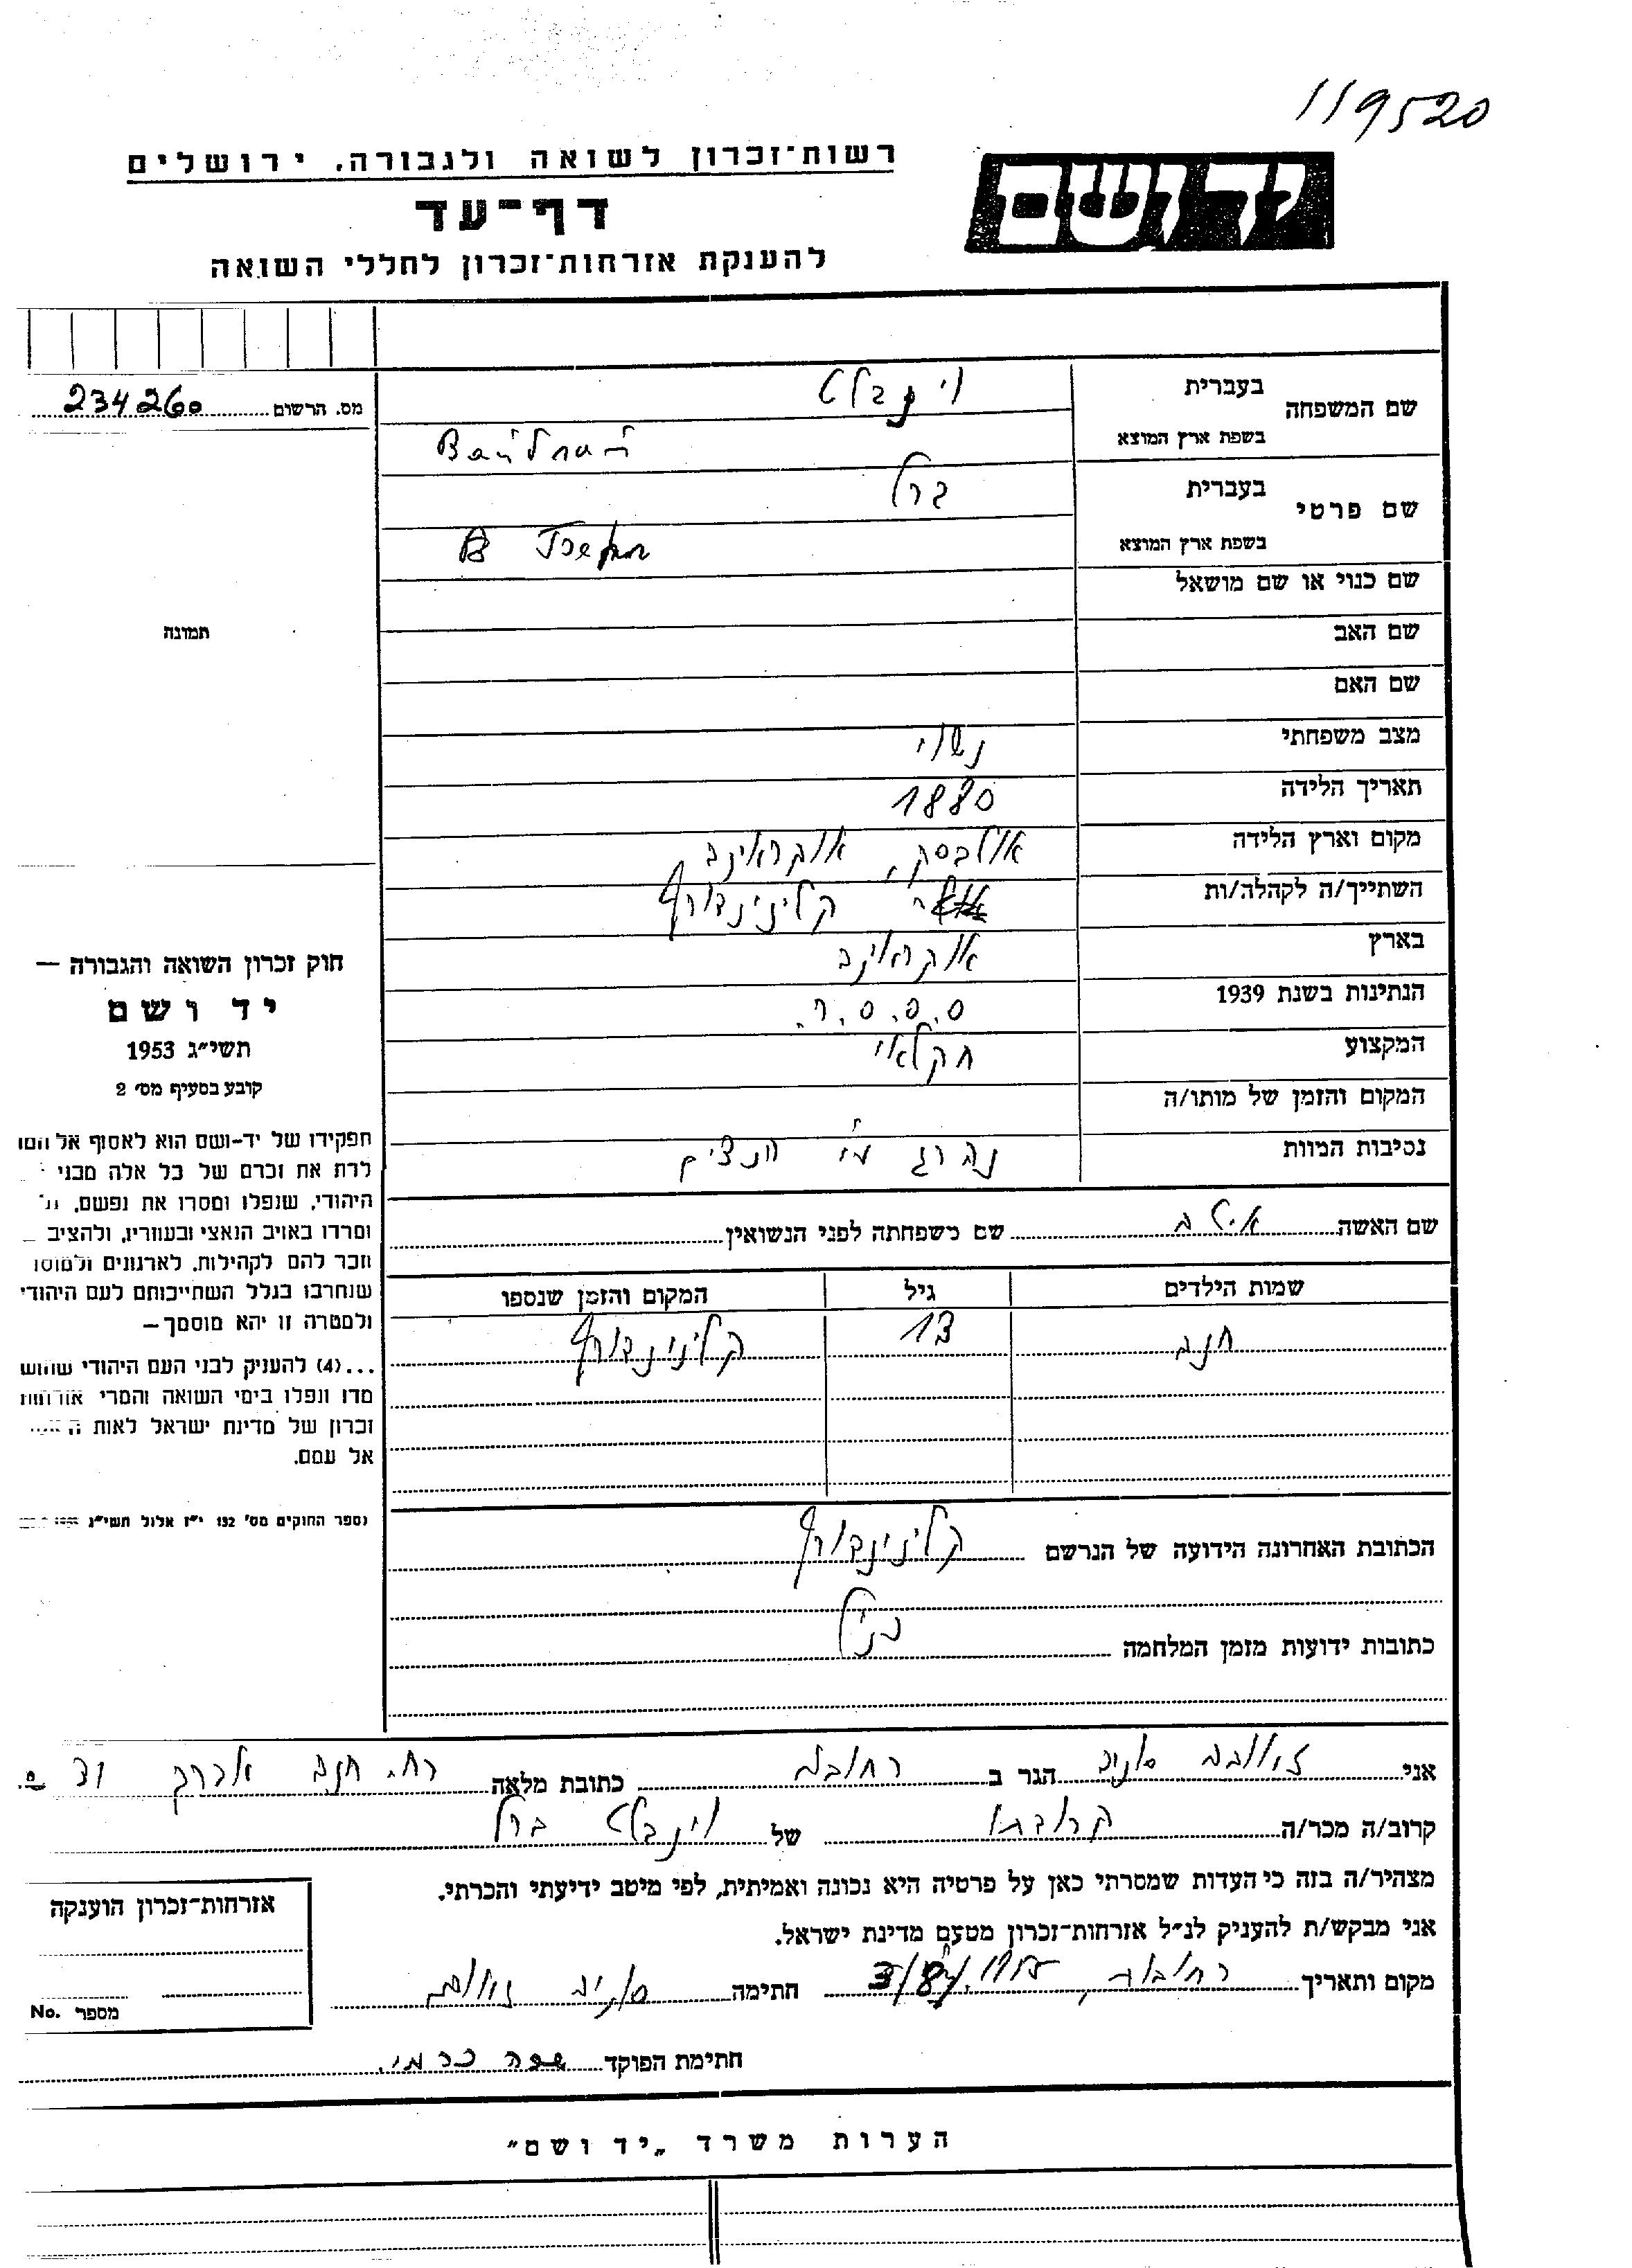 119520
יד ושם
רשות־זכרון לשואה ולגבורה, ירושלים
דף־עד
להענקת אזרחות־זכרון לחללי השואה
מס. הרשום 234260
שם המשפחה בעברית וינבלט
בשפת ארץ המוצא
שם פרטי בעברית ברל
בשפת ארץ המוצא
שם כנוי או שם מושאל
תמונה
שם האב
שם האם
מצב משפחתי נשוי
תאריך הלידה 1880
מקום וארץ הלידה אוקראינה
השתייך/ה לקהלה/ות קלינינדורף
בארץ אוקראינה
הנתינות בשנת 1939 ס.ס.ס.ר.
המקצוע חקלאי
המקום והזמן של מותו/ה
נסיבות המוות נהרג ע"י הנצים
חוק זכרון השואה והגבורה —
יד ושם
תשי״ג 1953
קובע בסעיף מס׳ 2
תפקידו של יד-ושם הוא לאסוף אל המו
לדת את זכרם של כל אלה מבני
היהודי, שנפלו ומסרו את נפשם,
ומרדו באויב הנאצי ובעוזריו, ולהציב
וזכר להם לקהילות, לארגונים ולמוסו
שנחרבו בגלל השתייכותם לעם היהודי
ולמטרה זו יהא מוסמך—
...(4) להענית לבני העם היהודי שהוש
מדו ונפלו בימי השואה והמרי אזרחות
זכרון של מדינת ישראל לאות
אל עמם.
(ספר החוקים מס׳ 132 י״ז אלול תשי״ג
שם האשה שם משפחתה לפני הנשואין
שמות הילדים גיל המקום והזמן שנספו
חנה 13 קלינינדורף
הכתובת האחרונה הידועה של הנרשם קלינינדורף
כתובות ידועות מזמן המלחמה כנ"ל
אני הגר ב רחובות כתובת מלאה רח. חנה
קרוב/ה מכר/ה קרובתו של וינבלט ברל
מצהיר/ה בזה כי העדות שמסרתי כאן על פרטיה היא נכונה ואמיתית, לפי מיטב ידיעתי והכרתי.
אני מבקש/ת להעניק לנ״ל אזרחות־זכרון מטעם מדינת ישראל.
מקום ותאריך רחובות חתימה
אזרחות־זכרון הוענקה
מספר No.
חתימת הפוקד כרמי
הערות משרד „יד ושם״